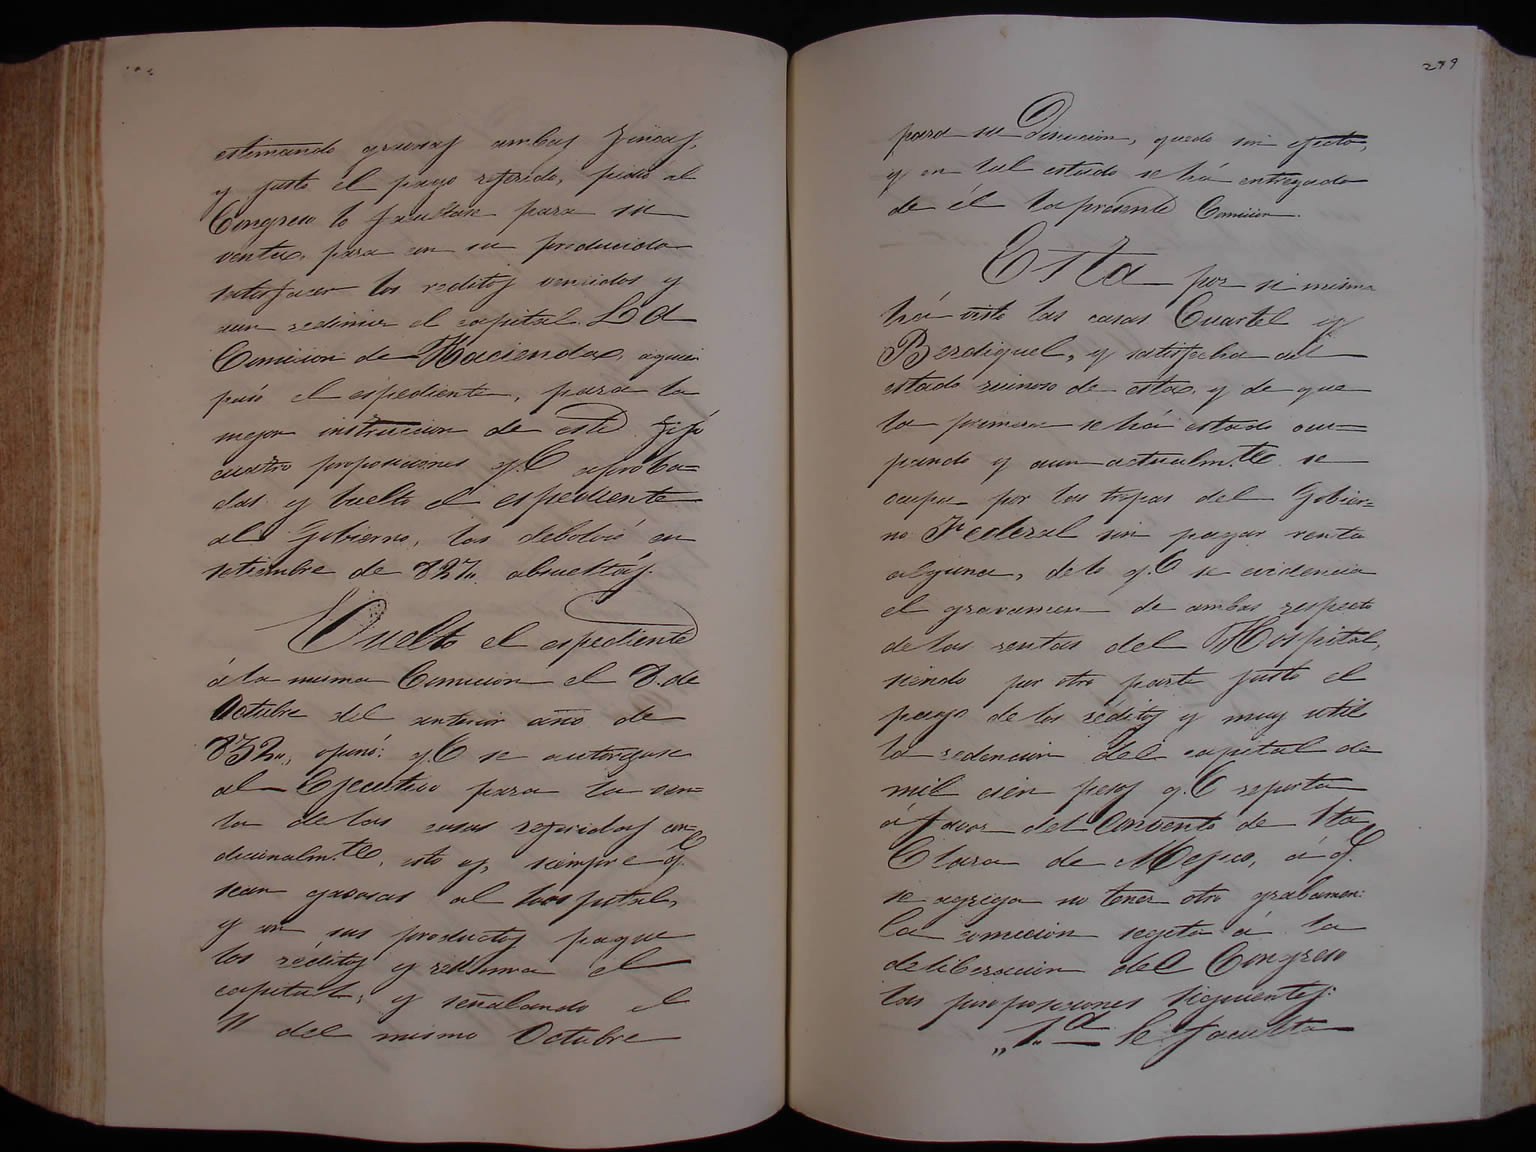 estimando grabosas ambas fincas,
y justo el pago referido, pidió al
Congreso lo facultase para su
venta, para con su producido
satisfacer los reditos vencidos y
aun redimir el capital. La
Comicion de Hacienda,
el espediente, para la
mejor instruccion de este fijó
cuatro proposiciones q.e aproba=
das y buelto el espediente
al Gobierno, las debolvió en
setiembre de 827,, absueltas.
Vuelto el espediente
á la misma Comicion el 8. de
Octubre del anterior año de
832,, opinó: q.e se autorizase
al Ejecutivo para la ven=
ta de las casas referidas con=
dicionalm.te, esto es, siempre q.e
sean gravosas al hospital,
y con sus productos pague
los réditos y redima el
capital; y señalando el
11 del mismo Octubre
299
para su Discucion, quedó sin efecto,
y en tal estado se há entregado
de él la presente Comicion.
Esta por si misma
há visto las casas Cuartel y
Berdiguel, y satisfecha del
estado ruinoso de esta, y de que
la primera se há estado ocu=
pando y aun actualm.te se
ocupa por las tropas del Gobier=
no Federal sin pagar renta
alguna, de lo q.e se evidencia
el gravamen de ambas respecto
de las rentas del Hospital,
siendo por otra parte justo el
pago de los réditos y muy util
la redencion del capital de
mil cien pesos q.e reporta
á favor del Convento de Sta
Clara de Mejico, á q.e
se agrega no tener otro grabamen:
La comicion sujeta á la
deliberacion del Congreso
las proposiciones siguientes:
„1.a Se faculta